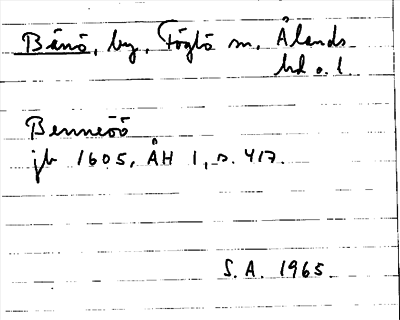 Bänö, by, Föglö sn, Ålands
hd o. l.
Benneöö
jb 1605, ÅH 1, s. 417.
S. A. 1965.